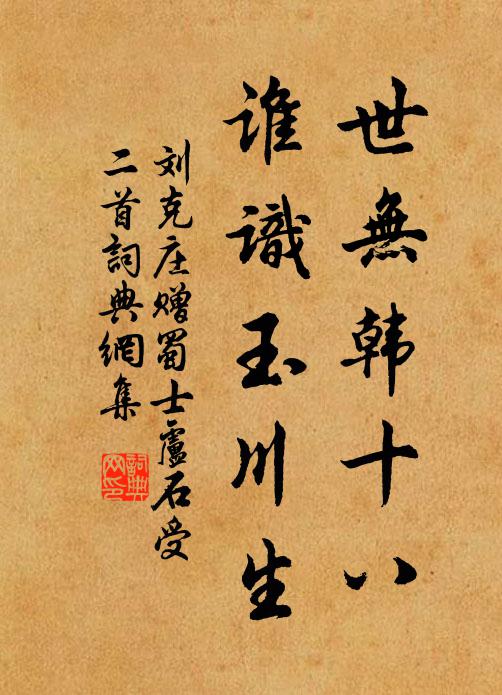 世無韩十八
谁識玉川生
刘克庄赠蜀士盧石受
二首詞典網集
詞典网印